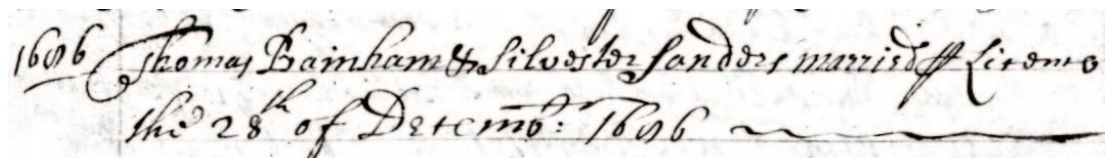 1686 Thomas Bainham & Silvester Sanders married ℔ Licence
the 28th of Decemb: 1686